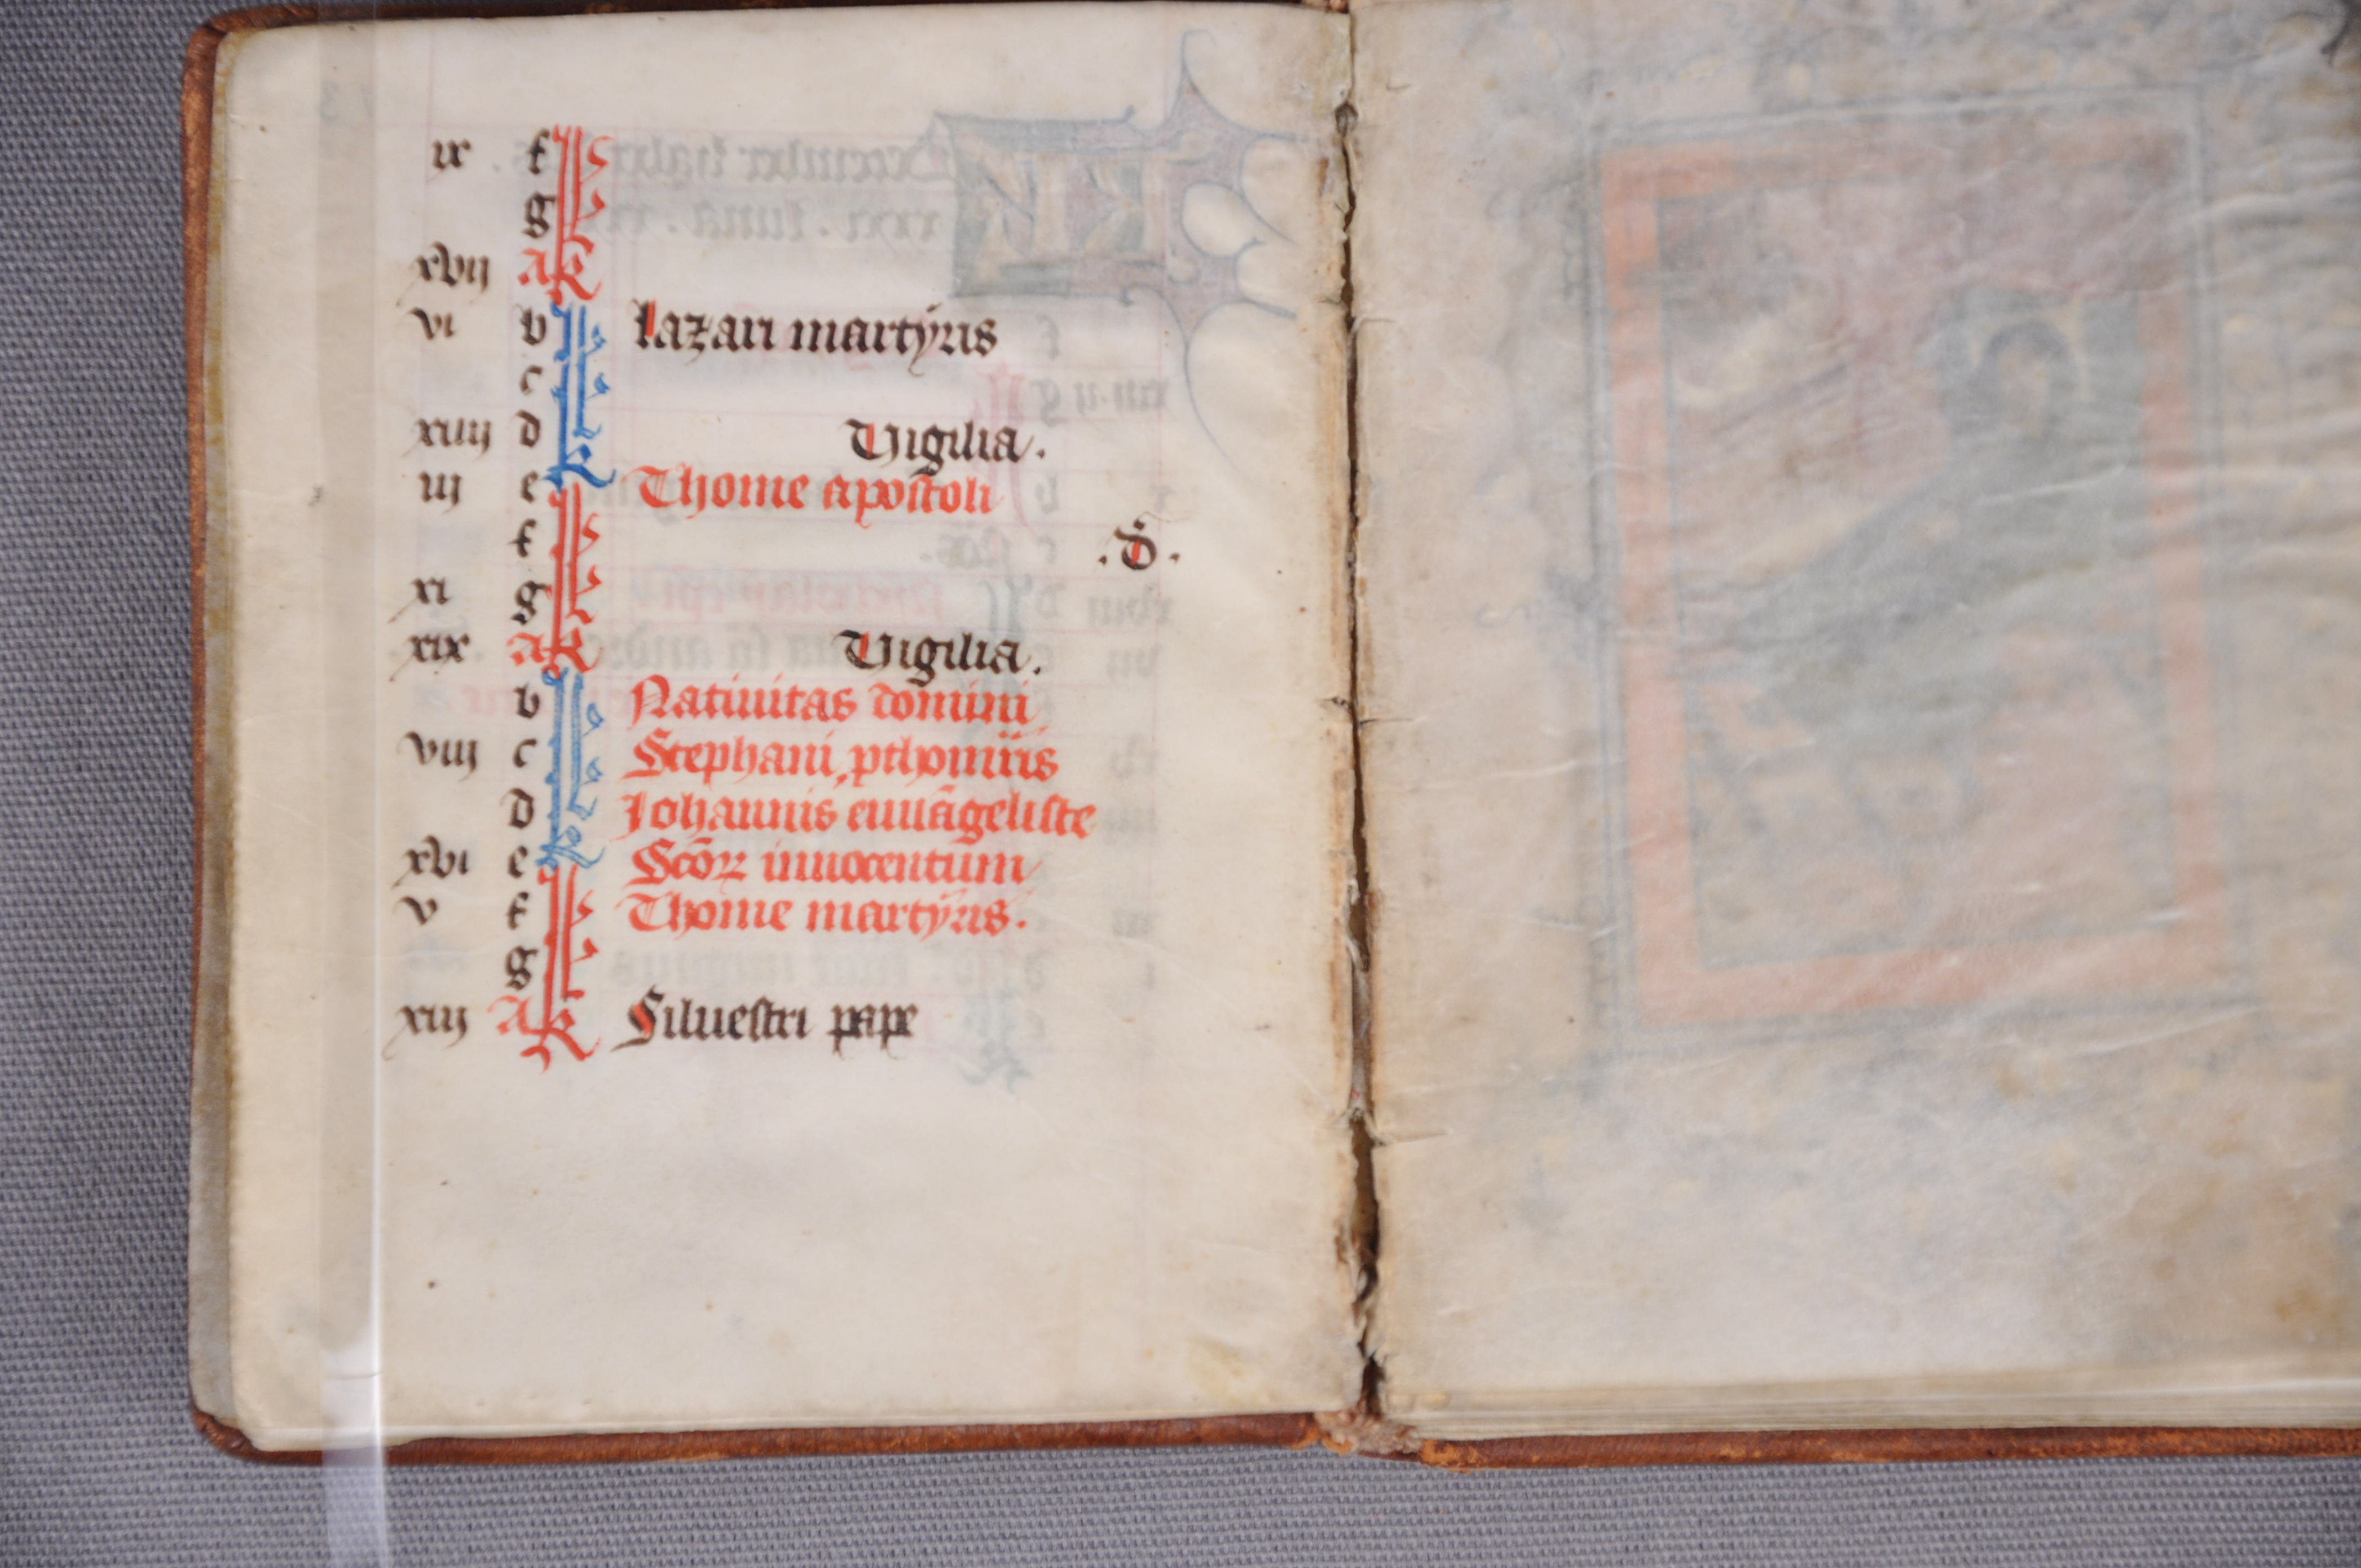 ix f kl
g kl
xvij A kl
vi b kl lazari martÿris
c kl
xiiij d kl Vigilia.
iij e kl Thome apostoli
f kl .d.
xi g kl
xix A kl Vigilia.
b kl Natiuitas domini
viij c kl Stephani pthomris
d kl Johannis euuāgeliste
xvi e kl Scōꝝ innocentum
v f kl Thome martÿris.
g kl
xiij A kl Siluestri pape